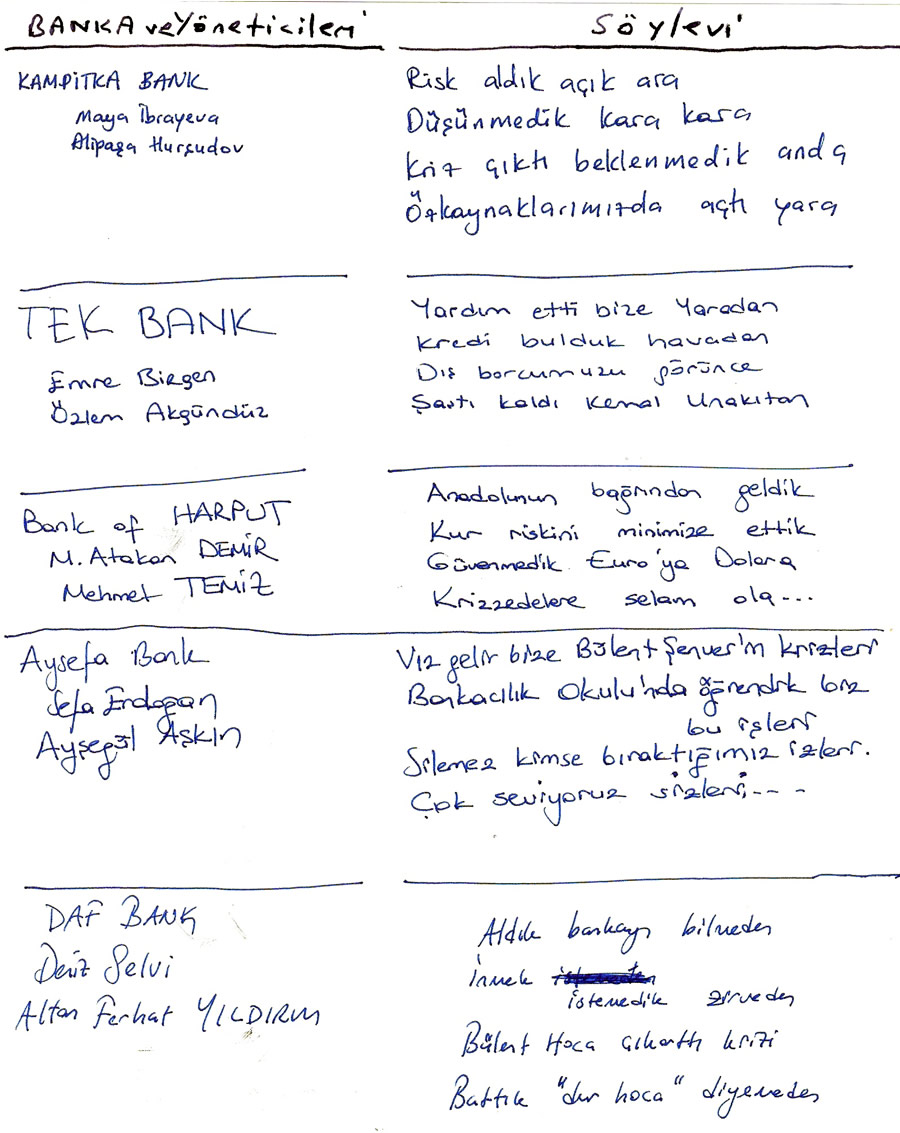 BANKA ve Yöneticileri
Söylevi
KAMPİTKA BANK
Maya İbrayeva
Alipaşa Hurşudov
Risk aldık açık ara
Düşünmedik kara kara
Kriz çıktı beklenmedik anda
Özkaynaklarımızda açtı yara
TEK BANK
Emre Birgen
Özlem Akgündüz
Yardım etti bize Yaradan
Kredi bulduk havadan
Dış borcumuzu görünce
Şaştı kaldı Kemal Unakıtan
Bank of HARPUT
M. Atakan DEMİR
Mehmet TEMİZ
Anadolunun bağrından geldik
Kur riskini minimize ettik
Güvenmedik Euro'ya Dolara
Krizzedelere selam ola...
Aysefa Bank
Sefa Erdoğan
Ayşegül Aşkın
Vız gelir bize Bülent Şenver'in krizleri
Bankacılık Okulu'nda öğrendik biz
bu işleri
Silemez kimse bıraktığımız izleri.
Çok seviyoruz sizleri...
DAF BANK
Deniz Selvi
Altan Ferhat YILDIRIM
Aldık bankayı bilmeden
İnmek
istemedik zirveden
Bülent Hoca çıkarttı krizi
Battık "dur hoca" diyemeden